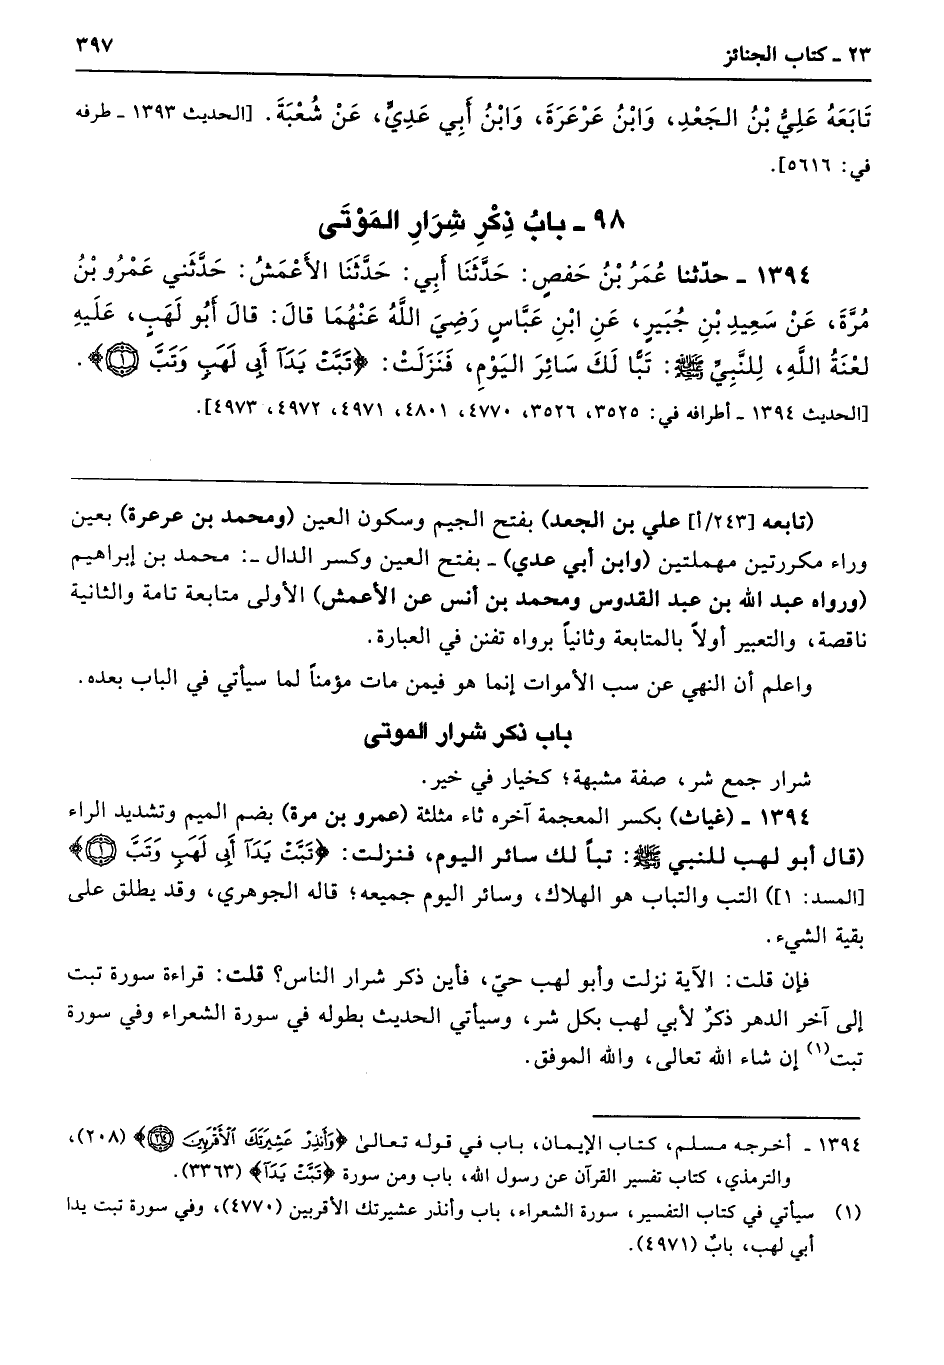 ٢٣ - كتاب الجنائز
٣٩٧
تَابَعَهُ عَلِيُّ بْنُ الجَعْدِ، وَابْنُ عَرْعَرَةَ، وَابْنُ أَبِي عَدِيٍّ، عَنْ شُعْبَةَ. [الحديث ١٣٩٣ - طرفه
في: ٥٦١٦].
٩٨ - بابُ ذِكْرِ شِرَارِ المَوْتَى
١٣٩٤ - حدّثنا عُمَرُ بْنُ حَفصٍ: حَدَّثَنَا أَبِي: حَدَّثَنَا الأَعْمَشُ: حَدَّثَني عَمْرُو بْنُ
مُرَّةَ، عَنْ سَعِيدِ بْنِ جُبَيرٍ، عَنِ ابْنِ عَبَّاسٍ رَضِيَ اللَّهُ عَنْهُمَا قالَ: قالَ أَبُو لَهَبٍ، عَلَيهِ
لعْنَةُ اللَّهِ، لِلنَّبِيِّ ﷺ: تَبًّا لَكَ سَائِرَ اليَوْمِ، فَنَزَلَتْ: ﴿تَبَّتْ يَدَآ أَبِى لَهَبٍ وَتَبَّ ۝١﴾.
[الحديث ١٣٩٤ - أطرافه في: ٣٥٢٥، ٣٥٢٦، ٤٧٧٠، ٤٨٠١، ٤٩٧١، ٤٩٧٢، ٤٩٧٣].
(تابعه [٢٤٣/أ] علي بن الجعد) بفتح الجيم وسكون العين (ومحمد بن عرعرة) بعين
وراء مكررتين مهملتين (وابن أبي عدي) - بفتح العين وكسر الدال -: محمد بن إبراهيم
(ورواه عبد الله بن عبد القدوس ومحمد بن أنس عن الأعمش) الأولى متابعة تامة والثانية
ناقصة، والتعبير أولاً بالمتابعة وثانياً برواه تفنن في العبارة.
واعلم أن النهي عن سب الأموات إنما هو فيمن مات مؤمناً لما سيأتي في الباب بعده.
باب ذكر شرار الموتى
شرار جمع شر، صفة مشبهة؛ كخيار في خير.
١٣٩٤ - (غياث) بكسر المعجمة آخره ثاء مثلثة (عمرو بن مرة) بضم الميم وتشديد الراء
(قال أبو لهب للنبي ﷺ: تباً لك سائر اليوم، فنزلت: ﴿تَبَّتْ يَدَآ أَبِى لَهَبٍ وَتَبَّ ۝١﴾
[المسد: ١]) التب والتباب هو الهلاك، وسائر اليوم جميعه؛ قاله الجوهري، وقد يطلق على
بقية الشيء.
فإن قلت: الآية نزلت وأبو لهب حيّ، فأين ذكر شرار الناس؟ قلت: قراءة سورة تبت
إلى آخر الدهر ذكرٌ لأبي لهب بكل شر، وسيأتي الحديث بطوله في سورة الشعراء وفي سورة
تبت(١) إن شاء الله تعالى، والله الموفق.
١٣٩٤ - أخرجه مسلم، كتاب الإيمان، باب في قوله تعالىٰ ﴿وَأَنذِرْ عَشِيرَتَكَ ٱلْأَقْرَبِينَ ۝٢١٤﴾ (٢٠٨)،
والترمذي، كتاب تفسير القرآن عن رسول الله، باب ومن سورة ﴿تَبَّتْ يَدَآ﴾ (٣٣٦٣).
(١) سيأتي في كتاب التفسير، سورة الشعراء، باب وأنذر عشيرتك الأقربين (٤٧٧٠)، وفي سورة تبت يدا
أبي لهب، بابٌ (٤٩٧١).